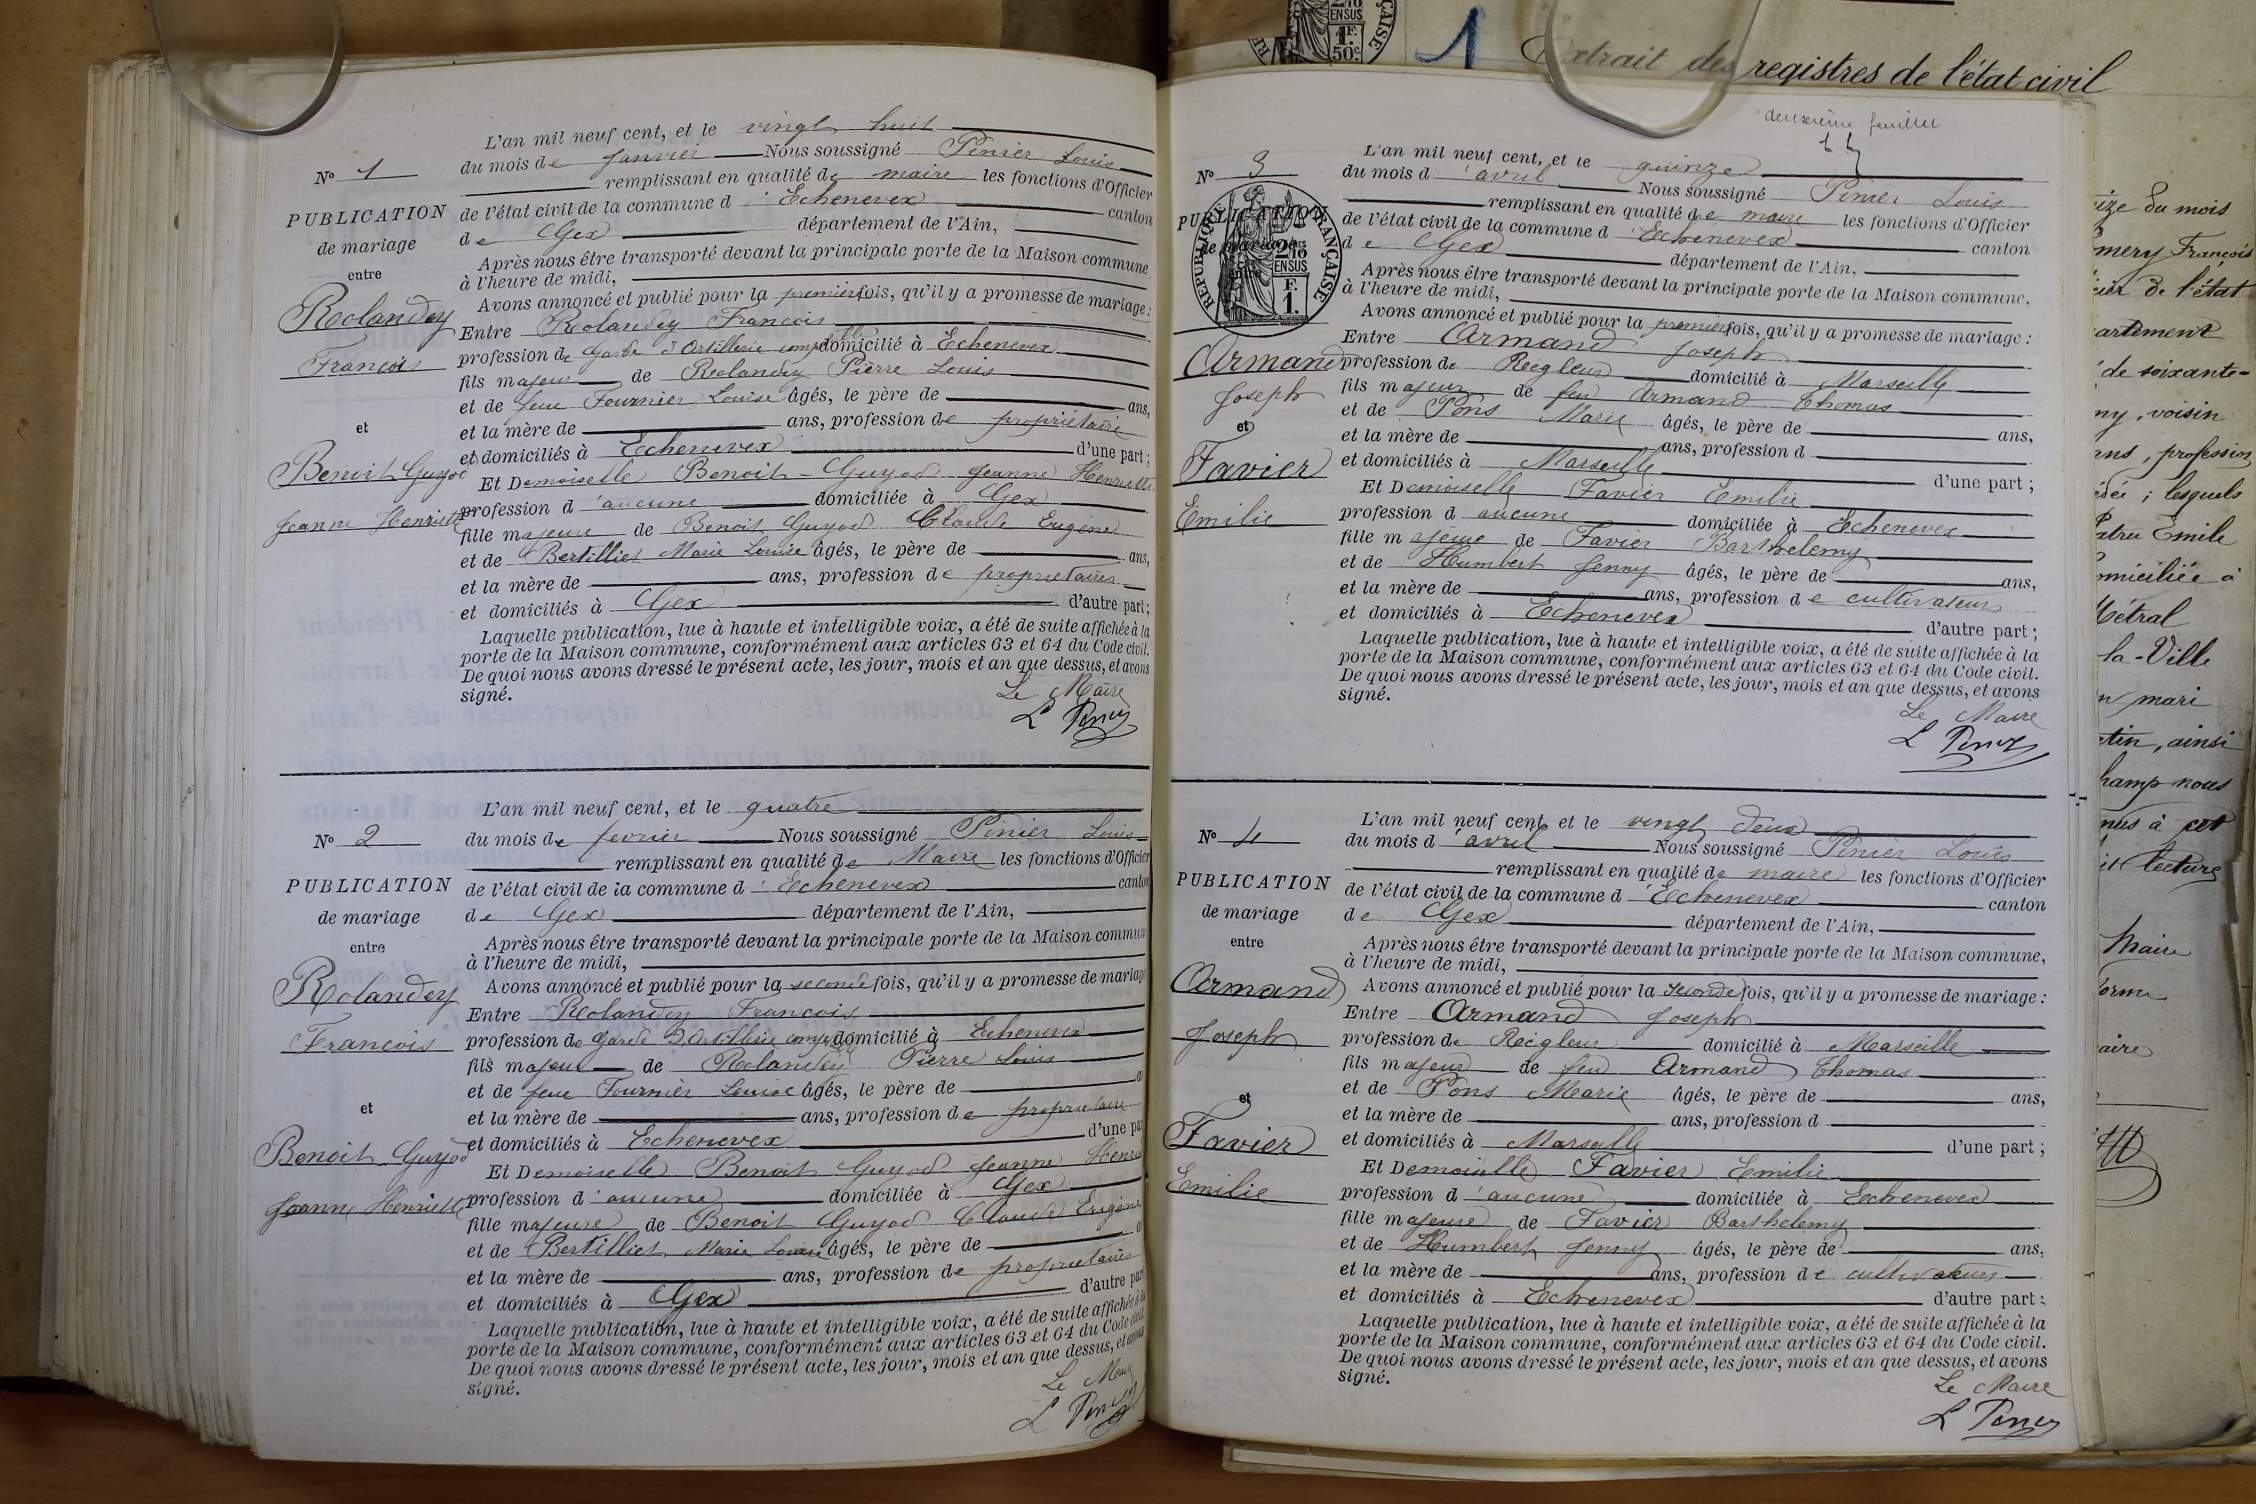 L'an mil neuf cent, et le vingt huit
du mois de Janvier Nous soussigné Pinier Louis
remplissant en qualité de maire les fonctions d'Officier
de l'état civil de la commune d'Echenevex canton
de Gex département de l'Ain,
Après nous être transporté devant la principale porte de la Maison commune
à l'heure de midi,
Avons annoncé et publié pour la première fois, qu'il y a promesse de mariage :
Entre Rolandey François
profession de Garde d'Artillerie domicilié à Echenevex
fils majeur de Rolandey Pierre Louis
et de feue Fournier Louise âgés, le père de ans,
et la mère de ans, profession de propriétaire
et domiciliés à Echenevex d'une part ;
Et Demoiselle Benoit-Guyod Jeanne Henriette
profession d'aucune domiciliée à Gex
fille majeure de Benoit Guyod Claude Eugène
et de Bertilliet Marie Louise âgés, le père de ans,
et la mère de ans, profession de propriétaires
et domiciliés à Gex d'autre part ;
Laquelle publication, lue à haute et intelligible voix, a été de suite affichée à la
porte de la Maison commune, conformément aux articles 63 et 64 du Code civil.
De quoi nous avons dressé le présent acte, les jour, mois et an que dessus, et avons
signé.
Le Maire
L Pinier
N° 1
PUBLICATION
de mariage
entre
Rolandey
François
et
Benoit Guyod
Jeanne Henriette
L'an mil neuf cent, et le quatre
du mois de fevrier Nous soussigné Pinier Louis
remplissant en qualité de Maire les fonctions d'Officier
de l'état civil de la commune d'Echenevex canton
de Gex département de l'Ain,
Après nous être transporté devant la principale porte de la Maison commun
à l'heure de midi,
Avons annoncé et publié pour la seconde fois, qu'il y a promesse de mariage
Entre Rolandey François
profession de Garde d'Artillerie domicilié à Echenevex
fils majeur de Rolandey Pierre Louis
et de feue Fournier Louise âgés, le père de a
et la mère de ans, profession de propriétaire
et domiciliés à Echenevex d'une pa
Et Demoiselle Benoit Guyod Jeanne Henri
profession d'aucune domiciliée à Gex
fille majeure de Benoit Guyod Claude Eugène
et de Bertilliet Marie Louise âgés, le père de a
et la mère de ans, profession de propriétaires
et domiciliés à Gex d'autre par
Laquelle publication, lue à haute et intelligible voix, a été de suite affichée à la
porte de la Maison commune, conformément aux articles 63 et 64 du Code civil.
De quoi nous avons dressé le présent acte, les jour, mois et an que dessus, et avons
signé.
Le Maire
L Pinier
N° 2
PUBLICATION
de mariage
entre
Rolandey
François
et
Benoit Guyod
Jeanne Henriette
deuxième feuillet
L'an mil neuf cent, et le quinze
du mois d'avril Nous soussigné Pinier Louis
remplissant en qualité de maire les fonctions d'Officier
de l'état civil de la commune d'Echenevex
de Gex canton
département de l'Ain,
Après nous être transporté devant la principale porte de la Maison commune,
à l'heure de midi,
Avons annoncé et publié pour la première fois, qu'il y a promesse de mariage :
Entre Armand Joseph
profession de Réigleur domicilié à Marseille
fils majeur de feu Armand Thomas
et de Pons Marie âgés, le père de ans,
et la mère de ans, profession d
et domiciliés à Marseille d'une part ;
Et Demoiselle Favier Emilie
profession d aucune domiciliée à Echenevex
fille majeure de Favier Barthelemy
et de Humbert Jenny âgés, le père de ans,
et la mère de ans, profession de cultivateurs
et domiciliés à Echenevex d'autre part ;
Laquelle publication, lue à haute et intelligible voix, a été de suite affichée à la
porte de la Maison commune, conformément aux articles 63 et 64 du Code civil.
De quoi nous avons dressé le présent acte, les jour, mois et an que dessus, et avons
signé.
Le Maire
L Pinier
N° 3
PUBLICATION
de mariage
entre
RÉPUBLIQUE FRANÇAISE
2/10 EN SUS
1 F.
Armand
Joseph
et
Favier
Emilie
L'an mil neuf cent, et le vingt deux
du mois d'avril Nous soussigné Pinier Louis
remplissant en qualité de maire les fonctions d'Officier
de l'état civil de la commune d'Echenevex canton
de Gex département de l'Ain,
Après nous être transporté devant la principale porte de la Maison commune,
à l'heure de midi,
Avons annoncé et publié pour la seconde fois, qu'il y a promesse de mariage :
Entre Armand Joseph
profession de Réigleur domicilié à Marseille
fils majeur de feu Armand Thomas
et de Pons Marie âgés, le père de ans,
et la mère de ans, profession d
et domiciliés à Marseille d'une part ;
Et Demoiselle Favier Emilie
profession d'aucune domiciliée à Echenevex
fille majeure de Favier Barthelemy
et de Humbert Jenny âgés, le père de ans,
et la mère de ans, profession de cultivateurs
et domiciliés à Echenevex d'autre part ;
Laquelle publication, lue à haute et intelligible voix, a été de suite affichée à la
porte de la Maison commune, conformément aux articles 63 et 64 du Code civil.
De quoi nous avons dressé le présent acte, les jour, mois et an que dessus, et avons
signé.
Le Maire
L Pinier
N° 4
PUBLICATION
de mariage
entre
Armand
Joseph
et
Favier
Emilie
2/10 EN SUS
1 F.
50 c.
1
Extrait des registres de l'état civil
ize du mois
mery François
cier de l'état
artement
de soixante-
ny, voisin
ans, profession
édée ; lesquels
atru Emile
omiciliée à
Métral
la-Ville
n mari
tin, ainsi
hamp nous
nus à cet
it lecture
Maire
forme
aire